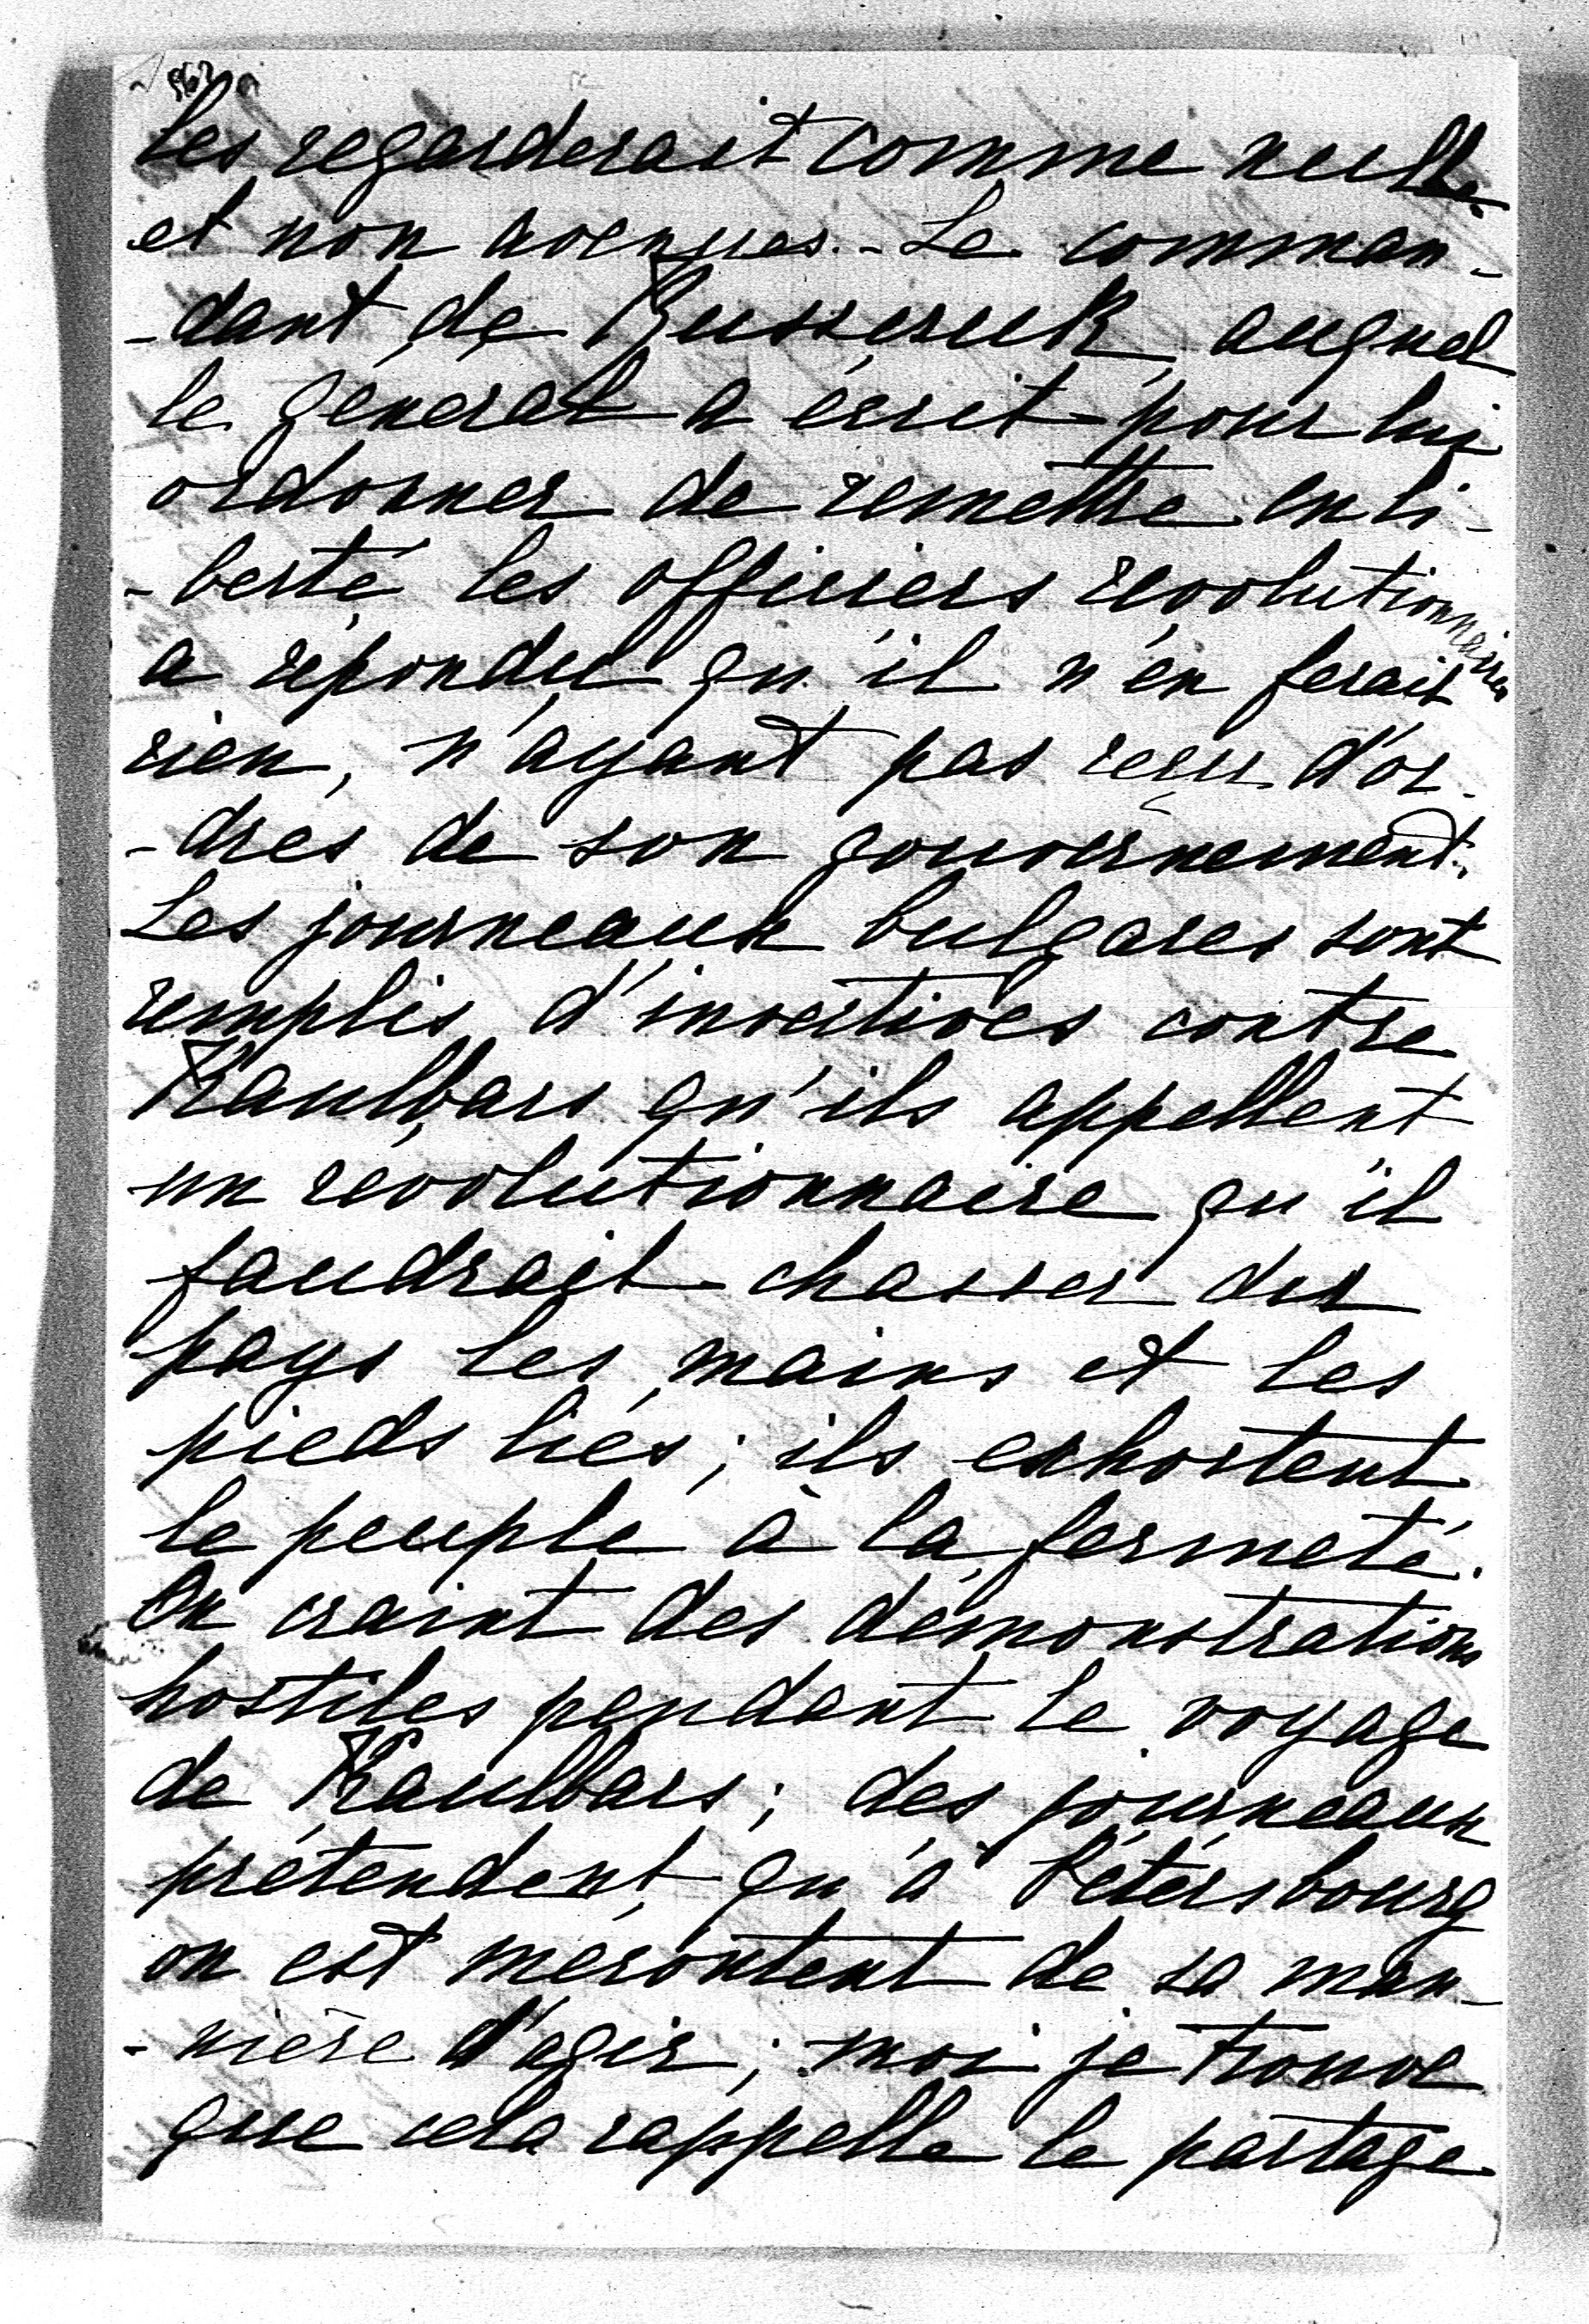 les regarderait comme nulles
et non avenues. - Le comman-
-dant de Russcsuk, auquel
le général a écrit pour lui
ordonner de remettre en li-
-berté les officiers révolutionnaires
a répondu qu'il n'en ferait
rien, n'ayant pas reçu d'or-
-dres de son gouvernement.
Les journeaux bulgares sont
remplis d'invectives contre
Kaulbars qu'ils appellent
un révolutionnaire qu'il
faudrait chasser du
pays les mains et les
pieds liés; ils exhortent
le peuple à la fermeté.
On craint des démonstrations
hostiles pendant le voyage
de Kaulbars; des journeaux
prétendent qu'à Pétersbourg
on est mécontent de sa man-
-nière d'agir; moi je trouve
que cela rappelle le partage